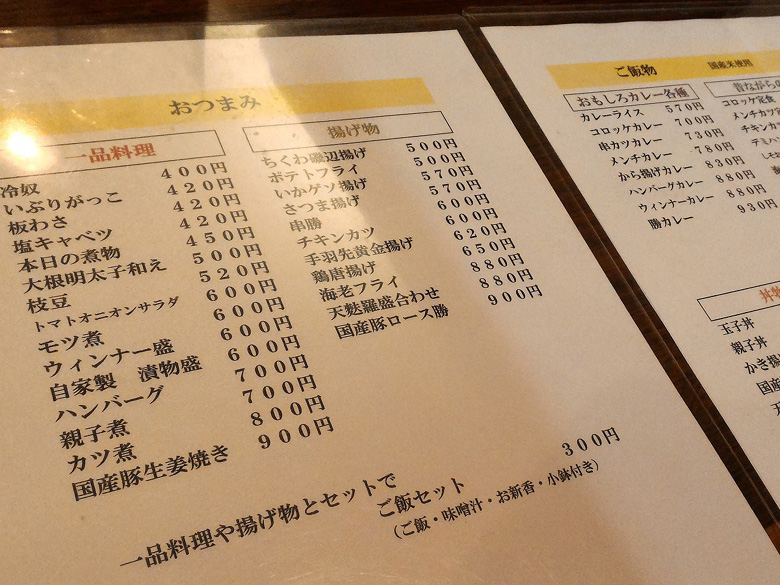 おつまみ
一品料理
冷奴 400円
いぶりがっこ 420円
板わさ 420円
塩キャベツ 420円
本日の煮物 450円
大根明太子和え 500円
枝豆 520円
トマトオニオンサラダ 600円
モツ煮 600円
ウィンナー盛 600円
自家製 漬物盛 600円
ハンバーグ 700円
親子煮 700円
カツ煮 800円
国産豚生姜焼き 900円
揚げ物
ちくわ磯辺揚げ 500円
ポテトフライ 500円
いかゲソ揚げ 570円
さつま揚げ 570円
串勝 600円
チキンカツ 600円
手羽先黄金揚げ 620円
鶏唐揚げ 650円
海老フライ 880円
天麩羅盛合わせ 880円
国産豚ロース勝 900円
一品料理や揚げ物とセットで
ご飯セット 300円
(ご飯・味噌汁・お新香・小鉢付き)
ご飯物 国産米使用
おもしろカレー各種
カレーライス 570円
コロッケカレー 700円
串カツカレー 730円
メンチカレー 780円
から揚げカレー 830円
ハンバーグカレー 880円
ウィンナーカレー 880円
勝カレー 930円
昔ながらの
コロッケ定食
メンチカツ
チキン
デミハン
丼物
玉子丼
親子丼
かき揚
国産